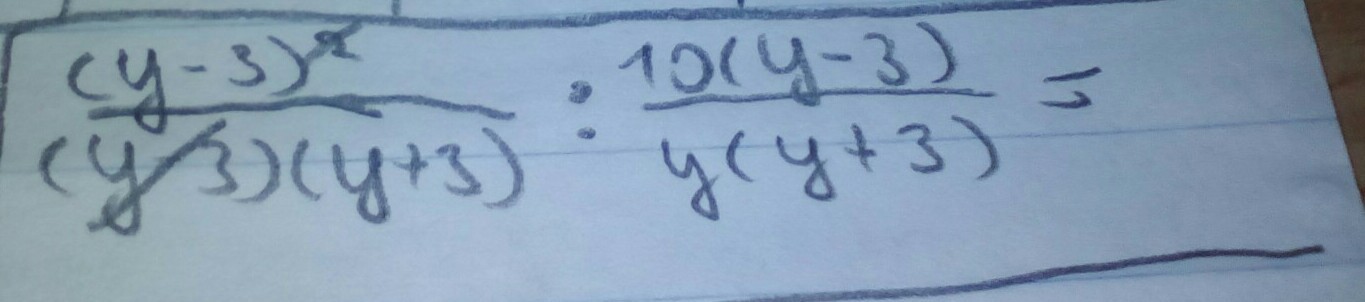 (y-3)² / (y-3)(y+3) : 10(y-3) / y(y+3) =